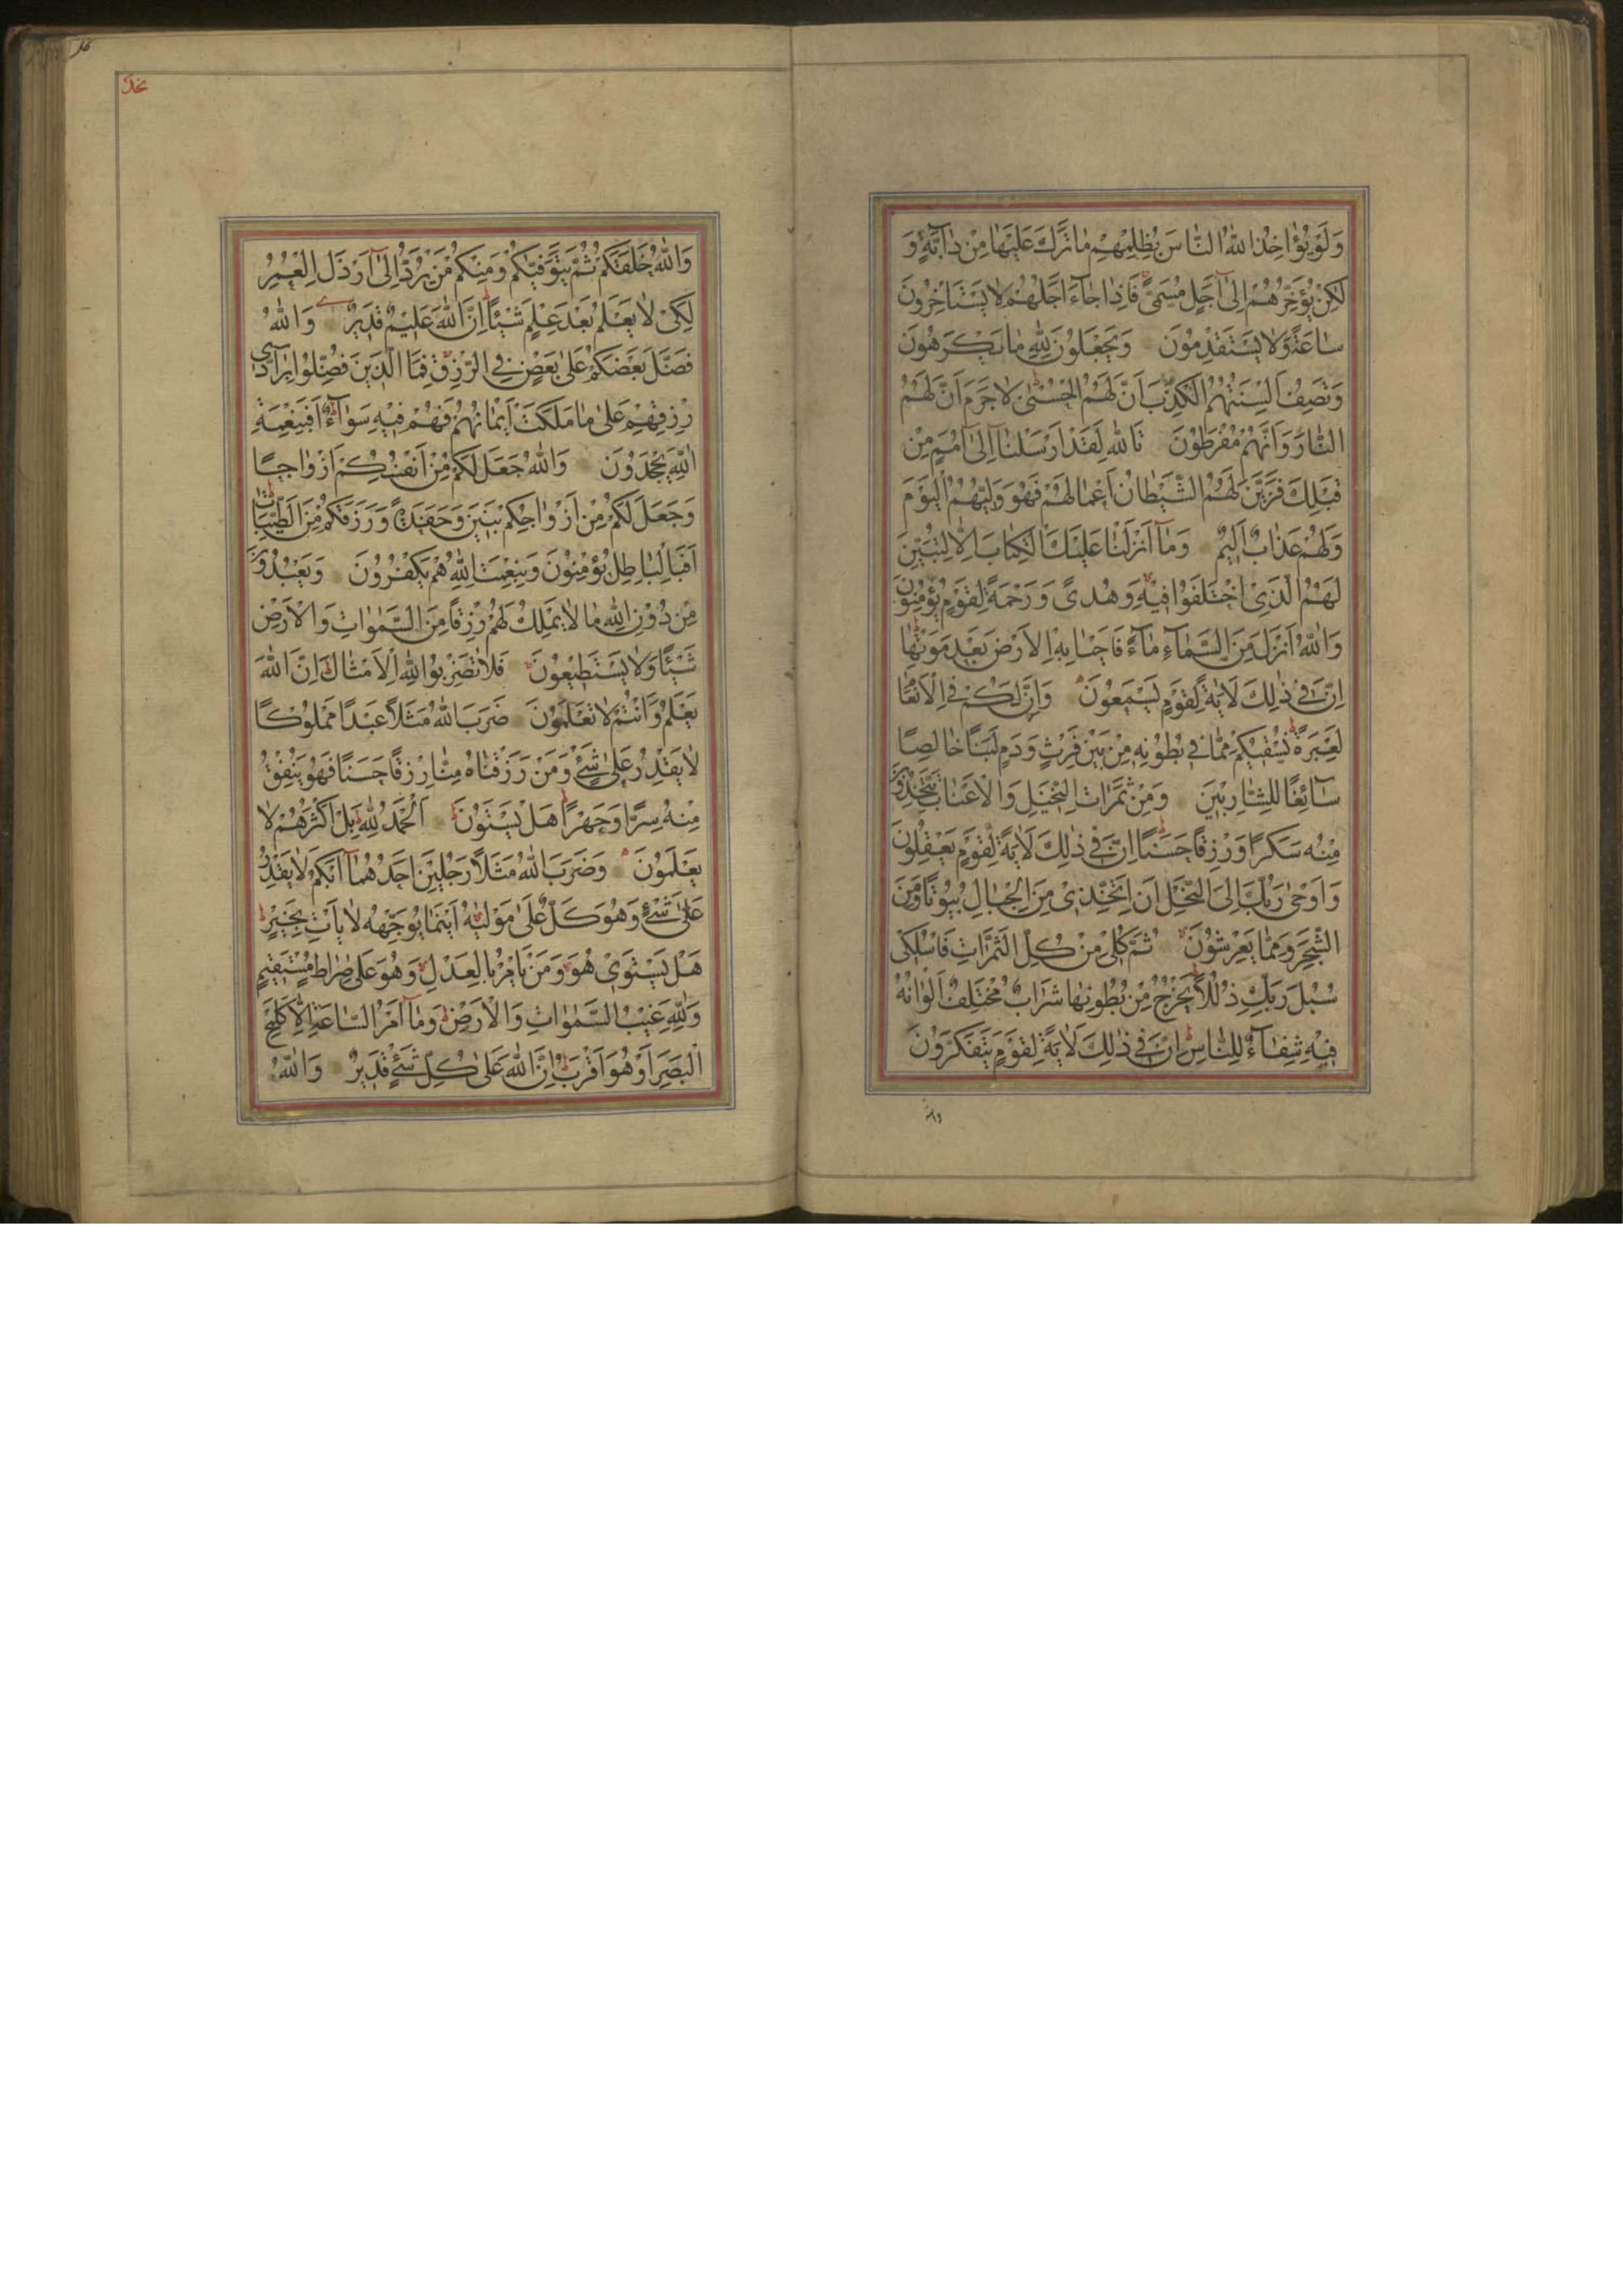 وَلَوْ يُؤَاخِذُ اللّٰهُ النَّاسَ بِظُلْمِهِمْ مَا تَرَكَ عَلَيْهَا مِنْ دَابَّةٍ وَ
لٰكِنْ يُؤَخِّرُهُمْ اِلٰى اَجَلٍ مُسَمًّى فَاِذَا جَاءَ اَجَلُهُمْ لَا يَسْتَاْخِرُونَ
سَاعَةً وَلَا يَسْتَقْدِمُونَ وَيَجْعَلُونَ لِلّٰهِ مَا يَكْرَهُونَ
وَتَصِفُ اَلْسِنَتُهُمُ الْكَذِبَ اَنَّ لَهُمُ الْحُسْنٰى لَا جَرَمَ اَنَّ لَهُمُ
النَّارَ وَاَنَّهُمْ مُفْرَطُونَ تَاللّٰهِ لَقَدْ اَرْسَلْنَا اِلٰى اُمَمٍ مِنْ
قَبْلِكَ فَزَيَّنَ لَهُمُ الشَّيْطَانُ اَعْمَالَهُمْ فَهُوَ وَلِيُّهُمُ الْيَوْمَ
وَلَهُمْ عَذَابٌ اَلِيمٌ وَمَا اَنْزَلْنَا عَلَيْكَ الْكِتَابَ اِلَّا لِتُبَيِّنَ
لَهُمُ الَّذِى اخْتَلَفُوا فِيهِ وَهُدًى وَرَحْمَةً لِقَوْمٍ يُؤْمِنُونَ
وَاللّٰهُ اَنْزَلَ مِنَ السَّمَاءِ مَاءً فَاَحْيَا بِهِ الْاَرْضَ بَعْدَ مَوْتِهَا
اِنَّ فِى ذٰلِكَ لَاٰيَةً لِقَوْمٍ يَسْمَعُونَ وَاِنَّ لَكُمْ فِى الْاَنْعَامِ
لَعِبْرَةً نُسْقِيكُمْ مِمَّا فِى بُطُونِهِ مِنْ بَيْنِ فَرْثٍ وَدَمٍ لَبَنًا خَالِصًا
سَائِغًا لِلشَّارِبِينَ وَمِنْ ثَمَرَاتِ النَّخِيلِ وَالْاَعْنَابِ تَتَّخِذُونَ
مِنْهُ سَكَرًا وَرِزْقًا حَسَنًا اِنَّ فِى ذٰلِكَ لَاٰيَةً لِقَوْمٍ يَعْقِلُونَ
وَاَوْحٰى رَبُّكَ اِلَى النَّحْلِ اَنِ اتَّخِذِى مِنَ الْجِبَالِ بُيُوتًا وَمِنَ
الشَّجَرِ وَمِمَّا يَعْرِشُونَ ثُمَّ كُلِى مِنْ كُلِّ الثَّمَرَاتِ فَاسْلُكِى
سُبُلَ رَبِّكِ ذُلُلًا يَخْرُجُ مِنْ بُطُونِهَا شَرَابٌ مُخْتَلِفٌ اَلْوَانُهُ
فِيهِ شِفَاءٌ لِلنَّاسِ اِنَّ فِى ذٰلِكَ لَاٰيَةً لِقَوْمٍ يَتَفَكَّرُونَ
وَاللّٰهُ خَلَقَكُمْ ثُمَّ يَتَوَفّٰيكُمْ وَمِنْكُمْ مَنْ يُرَدُّ اِلٰى اَرْذَلِ الْعُمُرِ
لِكَىْ لَا يَعْلَمَ بَعْدَ عِلْمٍ شَيْئًا اِنَّ اللّٰهَ عَلِيمٌ قَدِيرٌ وَاللّٰهُ
فَضَّلَ بَعْضَكُمْ عَلٰى بَعْضٍ فِى الرِّزْقِ فَمَا الَّذِينَ فُضِّلُوا بِرَادِّى
رِزْقِهِمْ عَلٰى مَا مَلَكَتْ اَيْمَانُهُمْ فَهُمْ فِيهِ سَوَاءٌ اَفَبِنِعْمَةِ
اللّٰهِ يَجْحَدُونَ وَاللّٰهُ جَعَلَ لَكُمْ مِنْ اَنْفُسِكُمْ اَزْوَاجًا
وَجَعَلَ لَكُمْ مِنْ اَزْوَاجِكُمْ بَنِينَ وَحَفَدَةً وَرَزَقَكُمْ مِنَ الطَّيِّبَاتِ
اَفَبِالْبَاطِلِ يُؤْمِنُونَ وَبِنِعْمَتِ اللّٰهِ هُمْ يَكْفُرُونَ وَيَعْبُدُونَ
مِنْ دُونِ اللّٰهِ مَا لَا يَمْلِكُ لَهُمْ رِزْقًا مِنَ السَّمٰوَاتِ وَالْاَرْضِ
شَيْئًا وَلَا يَسْتَطِيعُونَ فَلَا تَضْرِبُوا لِلّٰهِ الْاَمْثَالَ اِنَّ اللّٰهَ
يَعْلَمُ وَاَنْتُمْ لَا تَعْلَمُونَ ضَرَبَ اللّٰهُ مَثَلًا عَبْدًا مَمْلُوكًا
لَا يَقْدِرُ عَلٰى شَىْءٍ وَمَنْ رَزَقْنَاهُ مِنَّا رِزْقًا حَسَنًا فَهُوَ يُنْفِقُ
مِنْهُ سِرًّا وَجَهْرًا هَلْ يَسْتَوُونَ اَلْحَمْدُ لِلّٰهِ بَلْ اَكْثَرُهُمْ لَا
يَعْلَمُونَ وَضَرَبَ اللّٰهُ مَثَلًا رَجُلَيْنِ اَحَدُهُمَا اَبْكَمُ لَا يَقْدِرُ
عَلٰى شَىْءٍ وَهُوَ كَلٌّ عَلٰى مَوْلٰيهُ اَيْنَمَا يُوَجِّهْهُ لَا يَاْتِ بِخَيْرٍ
هَلْ يَسْتَوِى هُوَ وَمَنْ يَاْمُرُ بِالْعَدْلِ وَهُوَ عَلٰى صِرَاطٍ مُسْتَقِيمٍ
وَلِلّٰهِ غَيْبُ السَّمٰوَاتِ وَالْاَرْضِ وَمَا اَمْرُ السَّاعَةِ اِلَّا كَلَمْحِ
الْبَصَرِ اَوْ هُوَ اَقْرَبُ اِنَّ اللّٰهَ عَلٰى كُلِّ شَىْءٍ قَدِيرٌ وَاللّٰهُ